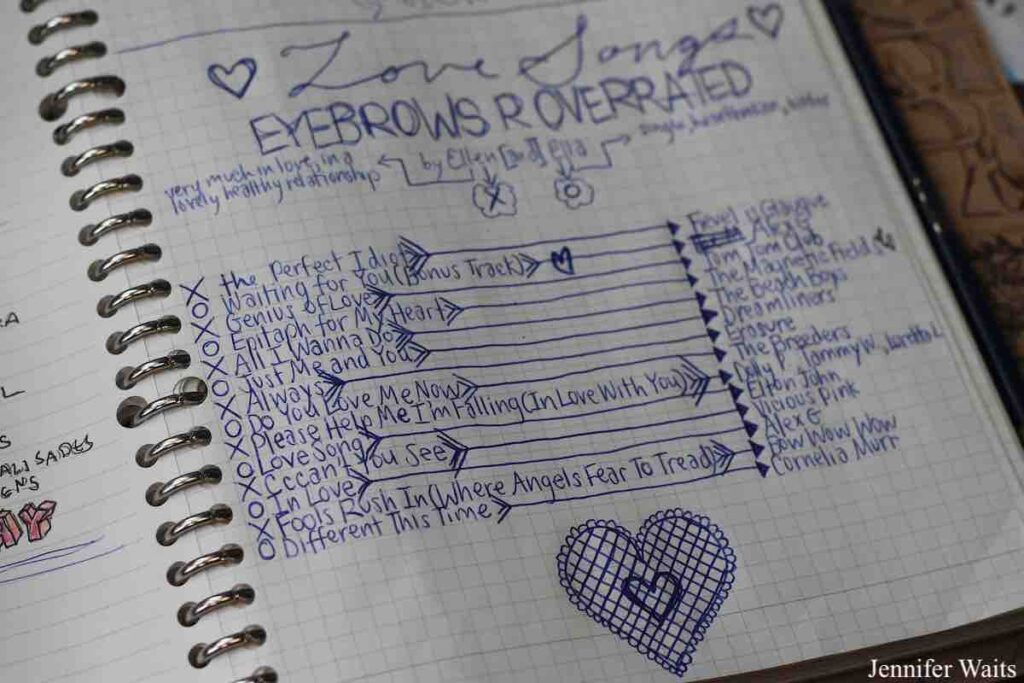 Love Songs
EYEBROWS R OVERRATED
by Ellen [and] Ella
single, heartbroken, bitter
very much in love, in a
lovely healthy relationship
X O
X the Perfect Idiot Fievel is Glauque
O Waiting for You (Bonus Track) Alex G
X Genius of Love Tom Tom Club
O Epitaph for My Heart The Magnetic Fields
X All I Wanna Do The Beach Boys
O Just Me and You Dreamliners
X Always Erasure
O Do You Love Me Now The Breeders
X Please Help Me I'm Falling (In Love With You) Dolly P, Tammy W., Loretta L
O Love Song Elton John
X Cccan't You See Vicious Pink
O In Love Alex G
X Fools Rush In (Where Angels Fear To Tread) Bow Wow Wow
O Different This Time Cornelia Murr
ALISADES
Jennifer Waits